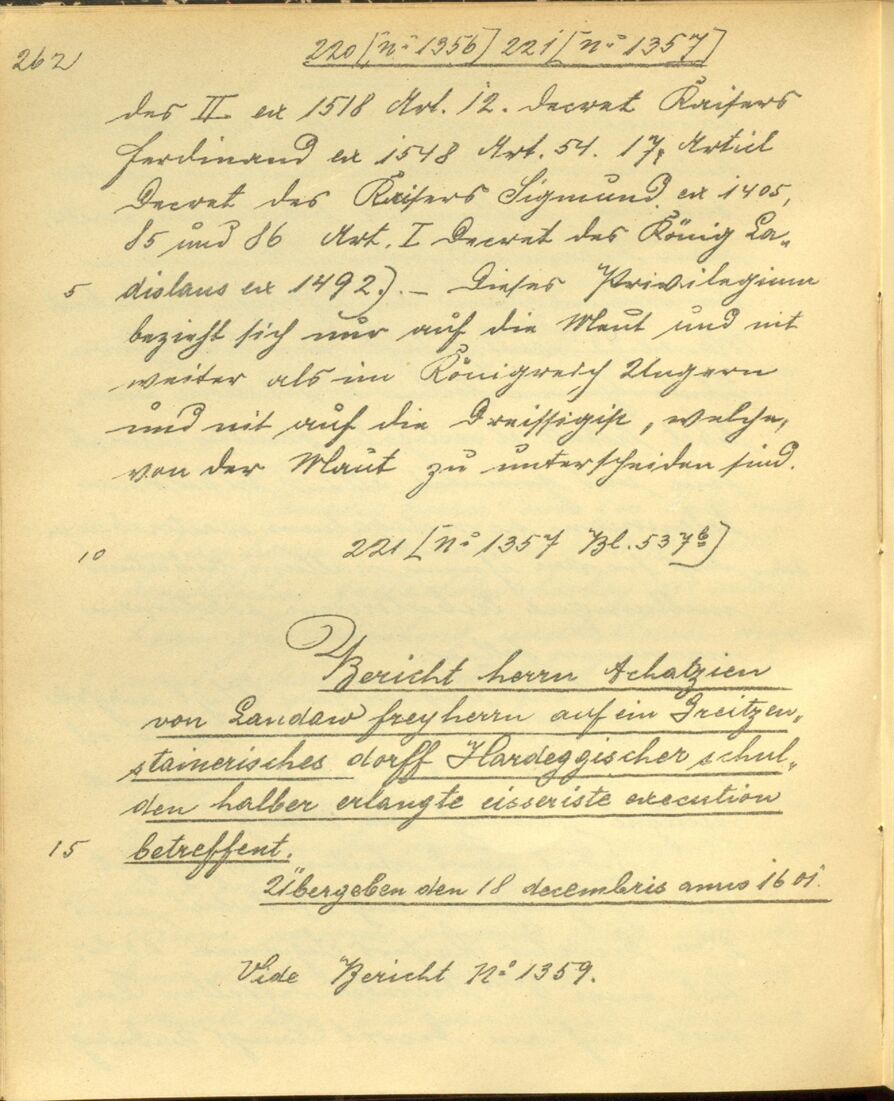 262
220 [No 1356] 221 [No 1357]
des II ex 1518 Art. 12. Decret Kaisers
Ferdinand ex 1548 Art. 54. 17. Articl
Decret des Kaisers Sigmund ex 1405,
85 und 86 Art. I Decret des König La-
5 dislaus ex 1492.). – Dieses Privilegium
bezieht sich nur auf die Maut und nit
weiter als im Königreich Ungern
und nit auf die Dreissigist, welche,
von der Maut zu unterscheiden sind.
10 221 [No 1357 Bl. 537b]
Bericht herrn Achatzien
von Landaw freyherrn auf ein Greitzen-
stainerisches dorff Hardeggischer schul-
den halber erlangte eisseriste execution
15 betreffent.
Übergeben den 18 decembris anno 1601.
Vide Bericht No 1359.